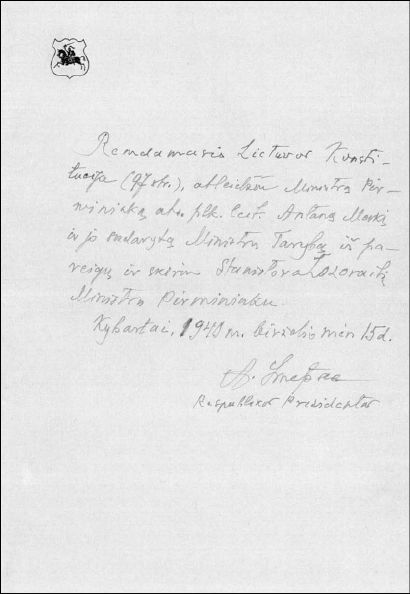 Remdamasis Lietuvos Konsti-
tucija (97 str.), atleidžiu Ministrą Pir-
mininką ats. plk. leit. Antaną Merkį
ir jo sudarytą Ministrų Tarybą iš pa-
reigų ir skiriu Stanislovą Lozoraitį
Ministru Pirmininku.
Kybartai, 1940 m. birželio mėn 15 d.
A. Smetona
Respublikos Prezidentas